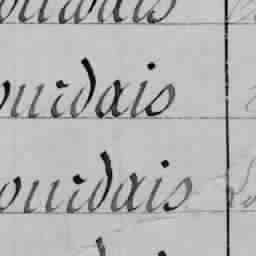 ourdais
ourdais
ourdais